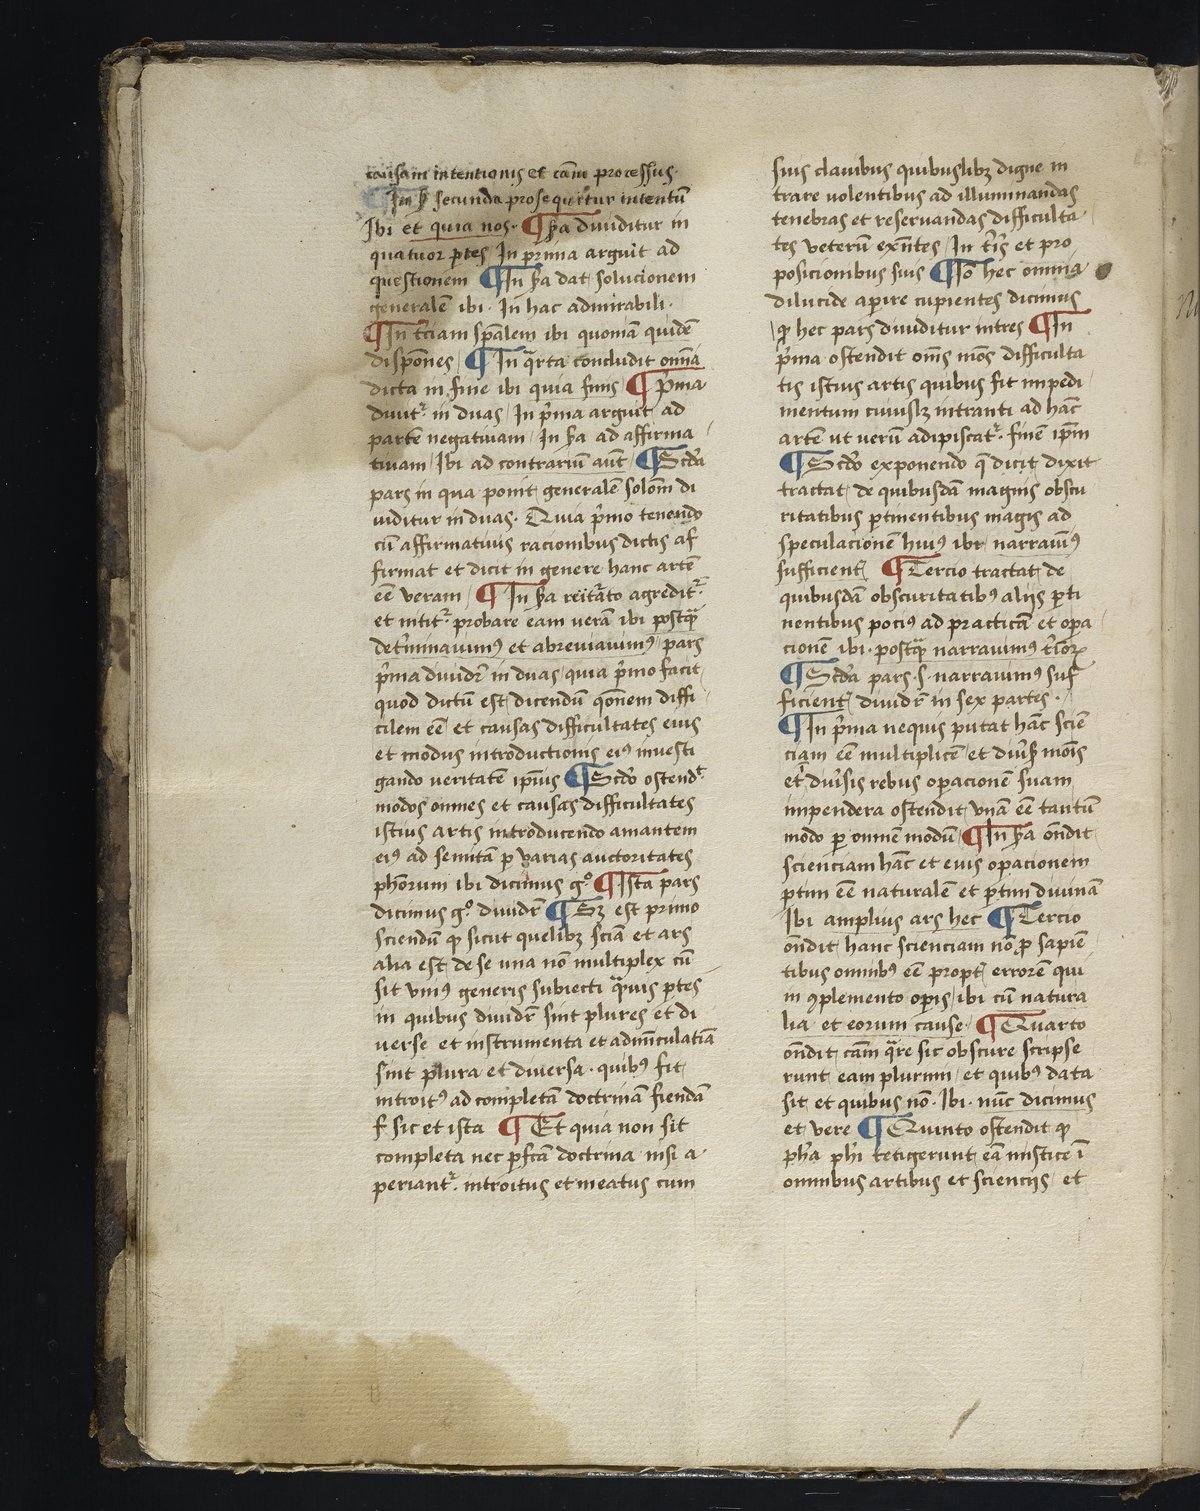 causam intentionis et cām processus·
¶In ꝭ secunda prosequitur intentū
Ibi et quia nos· ¶ꝭa diuiditur in
quatuor ptes / In prima arguit ad
questionem ¶In ꝭa dat solucionem
generalē ibi · In hac admirabili ·
¶In t͛ciam spālem ibi quoniā quidē
dispōnes / ¶In qͣrta concludit omnia
dicta in fine ibi quia finis / ¶Pͥma
diuit᷑ in duas / In pͥma arguit ad
partē negatiuam / In ꝭa ad affirma
tiuam / Ibi ad contrariū aūt / ¶Scđa
pars in qua ponit generalē solōm di
uiditur in duas · Quia pͥmo tenendo
cū affirmatiuis racionibus dictis af
firmat et dicit in genere hanc artē
eē veram / ¶In ꝭa reit͛ato agredit᷑
et nitit᷑ probare eam verā ibi postqͣꝫ
det͛minauimꝰ et abreuiauimꝰ / pars
pͥma diuidr̄ in duas / quia pͥmo facit
quod dictū est / dicendū qōnem diffi
cilem eē et causas difficultates eius
et modus introductionis eiꝰ inuesti
gando veritatē ipīus ¶Scđo ostendᵗ
modos omnes et causas difficultates
istius artis introducendo amantem
eiꝰ ad semitā ꝑ varias auctoritates
phōrum ibi dicimus gͦ ¶Ista pars
dicimus gͦ diuidr̄ ¶Sꝫ est primo
sciendū ꝙ sicut quelibꝫ sciā et ars
alia est de se una nō multiplex cū
sit vniꝰ generis subiecti qͣuis ꝑtes
in quibus diuidr̄ sint plures et di
uerse et instrumenta et adminiculatiā
sint plura et diuersa · quibꝰ fit
introitꝰ ad completā doctrinā fiendā
sic et ista ¶Et quia non sit
completa nec ꝑfcā doctrina nisi a
periant᷑ introitus et meatus cum
suis clauibus quibuslibꝫ digne in
trare uolentibus ad illuminandas
tenebras et reseruandas difficulta
tes veterū exn̄tes / In t͛is et pro
posicionibus suis ¶Iō hec omnia
dilucide aperire cupientes dicimus
ꝙ hec pars diuiditur in tres ¶In
pͥma ostendit om̄s mōs difficulta
tis istius artis quibus fit impedi
mentum cuiuslꝫ intranti ad hāc
artē ut verū adipiscat᷑ finē ipm̄
¶Scđo exponendo q̄ dicit dixit
tractat de quibusdā magnis obscu
ritatibus ꝑtinentibus magis ad
speculacionē huiꝰ ibi narrauimꝰ
sufficient᷑ ¶Tercio tractat de
quibusdā obscuritatibꝰ aliis ꝑti
nentibus pociꝰ ad practicā et opa
cionē ibi · postqͣꝫ narrauimꝰ t͛ioꝝ
¶Scđa pars · s · narrauimꝰ suf
ficient᷑ diuidr̄ in sex partes ·
¶In pͥma nequis putat hāc sciē
ciam eē multiplicē et diu͛s mōis
et diu͛sis rebus opacionē suam
impendera ostendit vnā eē tantū
modo ꝑ omnē modū / ¶In ꝭa on̄dit
scienciam hāc et eius opacionem
ꝑtim eē naturalē et ꝑtim diuinā
Ibi amplius ars hec ¶Tercio
on̄dit hanc scienciam nō ꝓ sapiē
tibus omnibꝰ eē propt᷑ errorē qui
in ꝯplemento opis / ibi cū natura
lia et eorum cause ¶Quarto
on̄dit cām qͣre sic obscure scripse
runt eam plurimi / et quibꝰ data
sit et quibus nō · Ibi · nūc dicimus
et vere ¶Quinto ostendit ꝙ
ph̄a ph̄i tetigerunt eā mistice ī
omnibus artibus et sciencijs / et